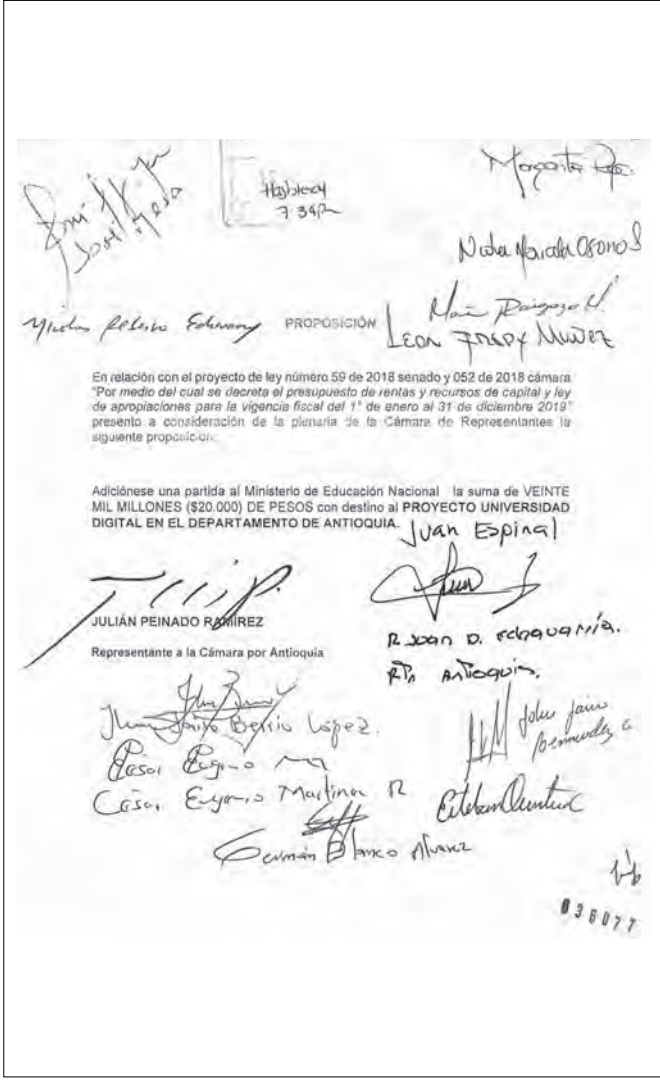 José
Mesa
7:34p
Margarita
Nidia Marcela Osorio S
Nicolas Albeiro Echeverry
PROPOSICIÓN
León Fredy Muñoz
En relación con el proyecto de ley número 59 de 2018 senado y 052 de 2018 cámara
"Por medio del cual se decreta el presupuesto de rentas y recursos de capital y ley
de apropiaciones para la vigencia fiscal del 1° de enero al 31 de diciembre 2019"
presento a consideración de la plenaria de la Cámara de Representantes la
siguiente proposición:
Adiciónese una partida al Ministerio de Educación Nacional la suma de VEINTE
MIL MILLONES ($20.000) DE PESOS con destino al PROYECTO UNIVERSIDAD
DIGITAL EN EL DEPARTAMENTO DE ANTIOQUIA.
Juan Espinal
JULIÁN PEINADO RAMÍREZ
Representante a la Cámara por Antioquia
R Juan D. Echavarría.
Antioquia.
Jhon Jairo Berrio López.
John Jairo
Bermudez G
Cesar Eugenio
Cesar Eugenio Martinez R
Esteban Quintero
Germán Blanco Alvarez
036077